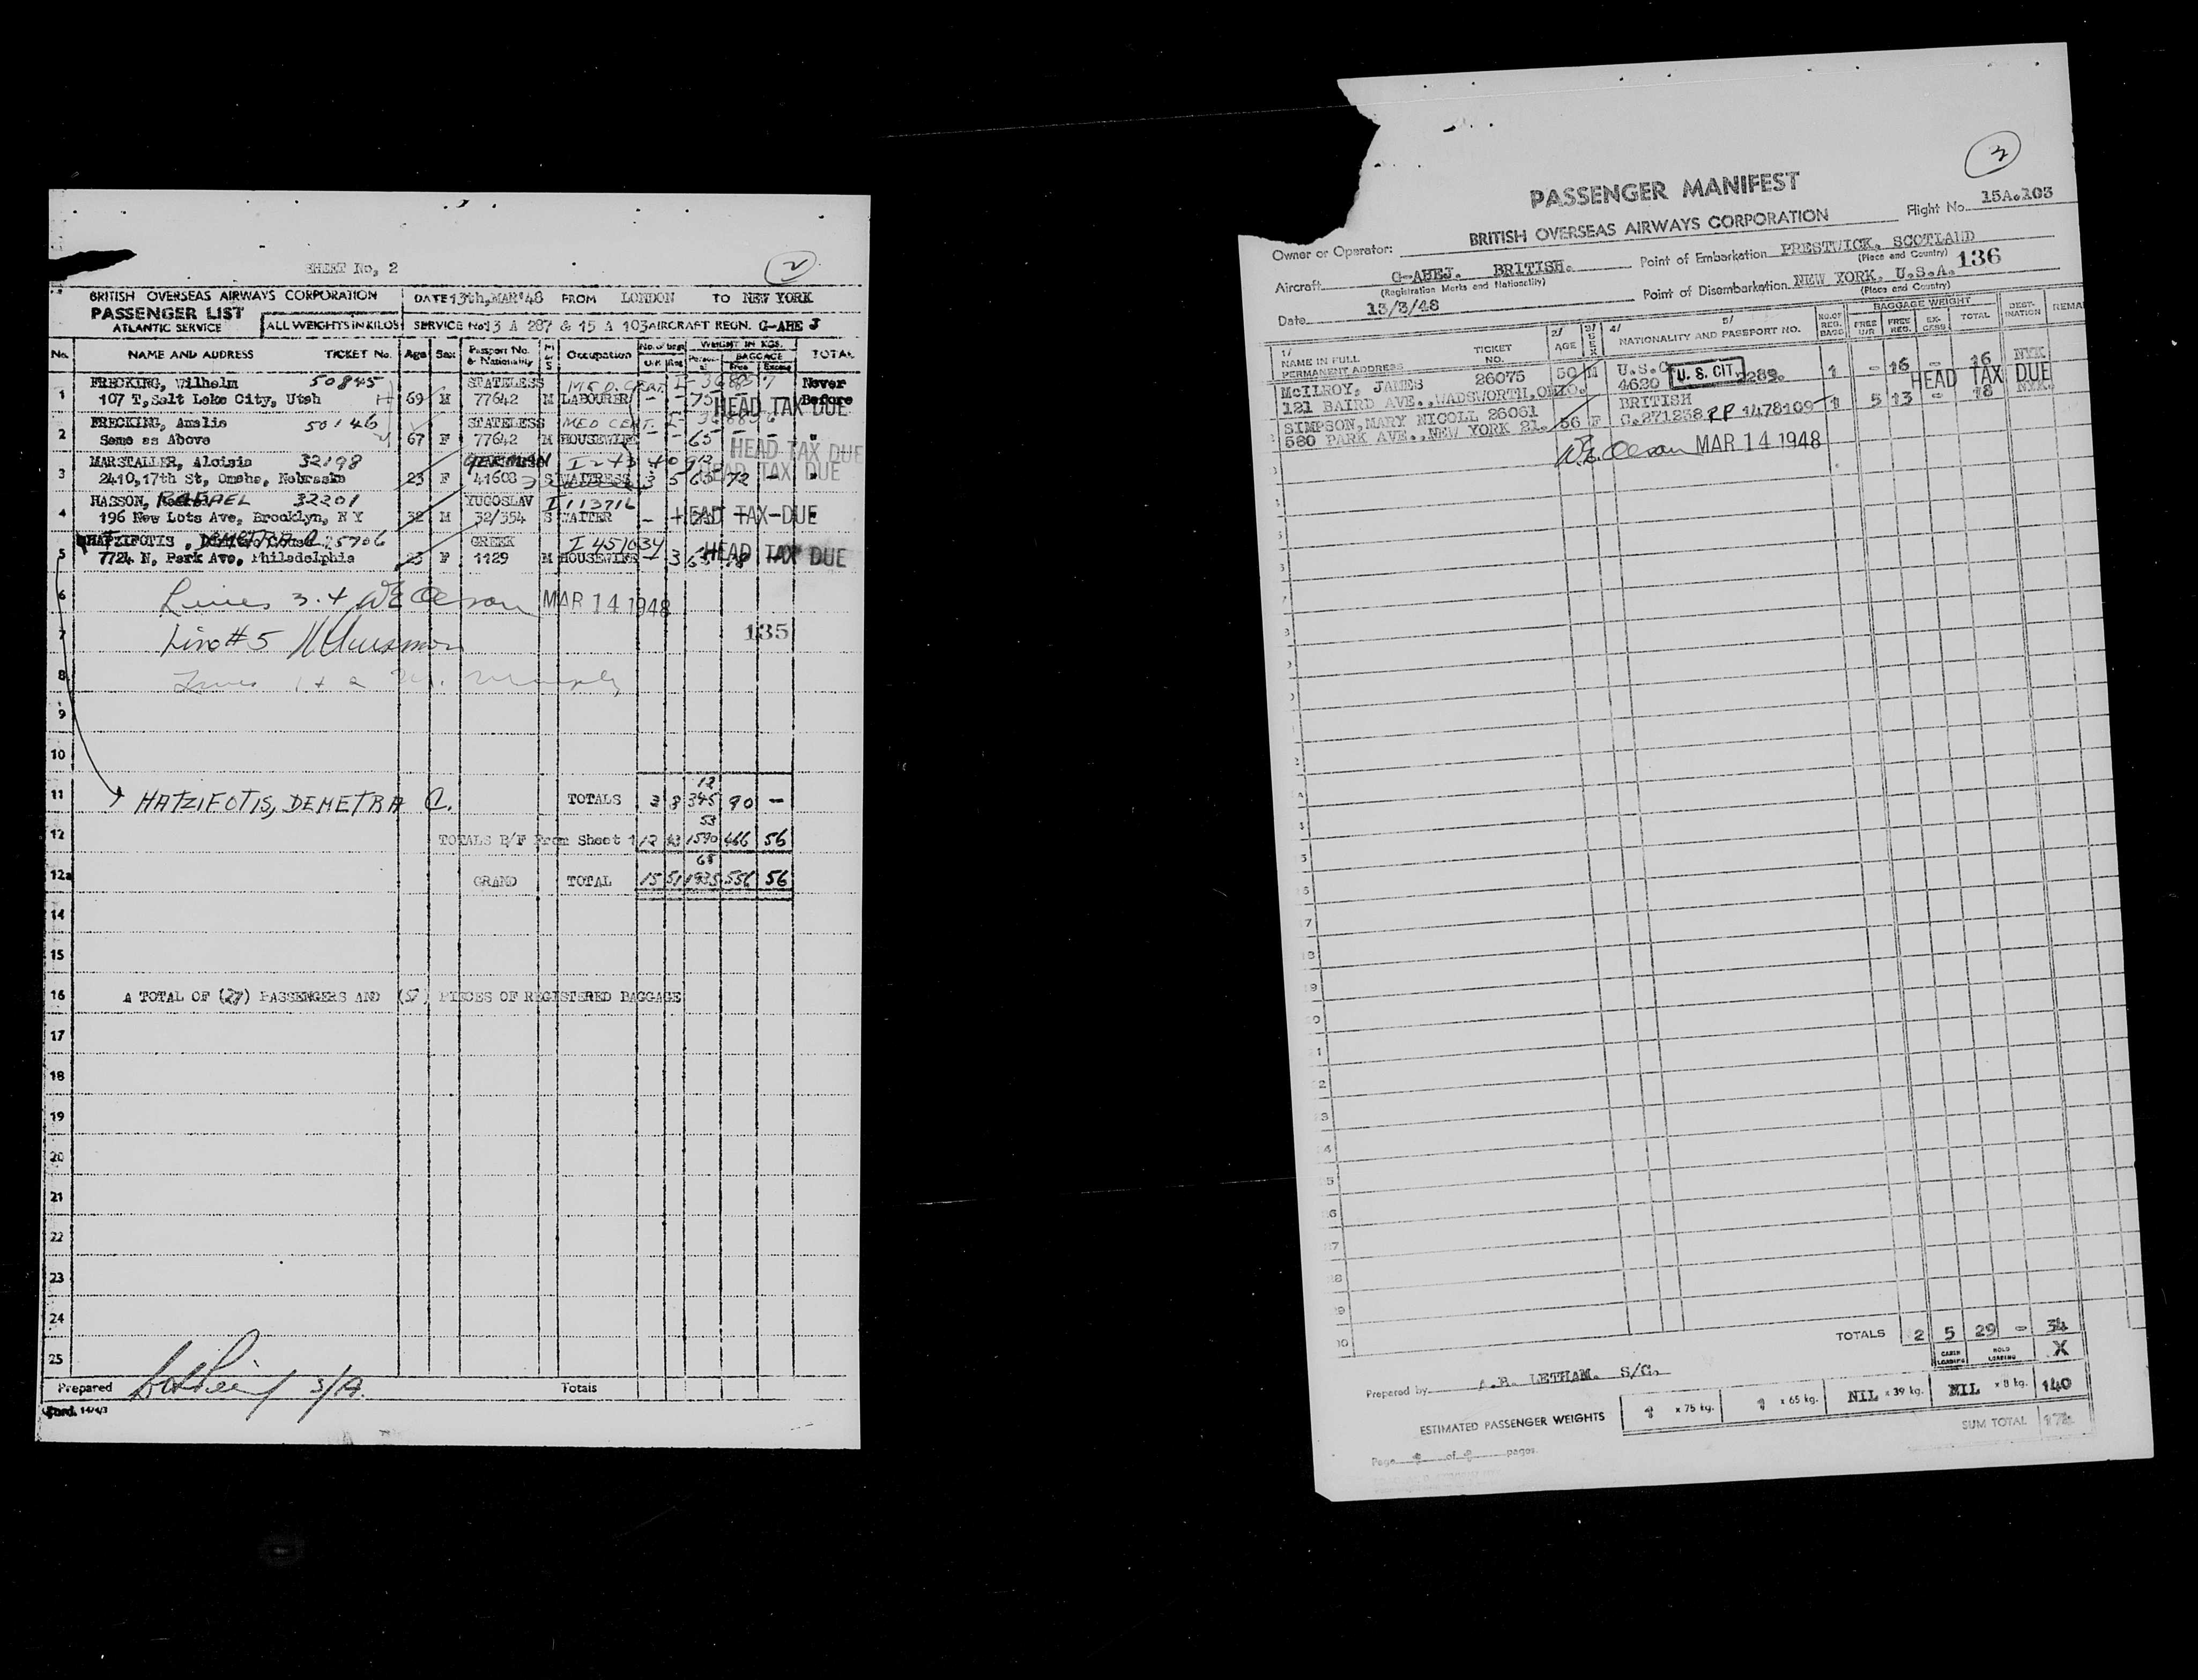 SHEET No, 2
2
BRITISH OVERSEAS AIRWAYS CORPORATION
PASSENGER LIST
ATLANTIC SERVICE
ALL WEIGHTS IN KILOS
DATE 13th, MAR '48 FROM LONDON TO NEW YORK
SERVICE No 13 A 287 & 15 A 103 AIRCRAFT REGN. G-AHE J
No. NAME AND ADDRESS TICKET No. Age Sex Passport No. & Nationality M or S Occupation No. of bags U/R Reg WEIGHT IN KGS. Personal BAGGAGE Free Excess TOTAL
1 FRECKING, Wilhelm 50845 STATELESS MED. CERT. Never
107 T, Salt Lake City, Utah 69 M 77642 M LABOURER - - 75 HEAD TAX DUE Before
2 FRECKING, Amalie 50146 STATELESS MED CERT.
Same as Above 67 F 77642 M HOUSEWIFE - - 65 - - "
HEAD TAX DUE
3 MARSTALLER, Aloisia 32198 GERMAN
2410, 17th St, Omaha, Nebraska 23 F 41603 S WAITRESS 3 5 65 72 - HEAD TAX DUE
4 HASSON, RAFAEL 32201 YUGOSLAV I 113716
196 New Lots Ave, Brooklyn, N Y 32 M 32/354 S WAITER - HEAD TAX DUE
5 HATZIFOTIS, DEMETRA C. 25706 GREEK I 451034
7724 N. Park Ave, Philadelphia 23 F 1129 M HOUSEWIFE - 3 65 18 HEAD TAX DUE
6 Lines 3.4 WE Olson MAR 14 1948
7 Line #5 135
8 Lines 1 + 2 M. Murphy
9
10
12
11 HATZIFOTIS, DEMETRA C. TOTALS 3 8 345 90 -
53
12 TOTALS B/F From Sheet 1 12 43 1590 466 56
65
12a GRAND TOTAL 15 51 1935 556 56
14
15
16 A TOTAL OF (27) PASSENGERS AND (51) PIECES OF REGISTERED BAGGAGE
17
18
19
20
21
22
23
24
25
Prepared S/A. Totals
3
PASSENGER MANIFEST
Owner or Operator: BRITISH OVERSEAS AIRWAYS CORPORATION Flight No. 15A.103
Aircraft G-AHEJ. BRITISH. Point of Embarkation PRESTWICK, SCOTLAND
(Registration Marks and Nationality) (Place and Country) 136
Date 13/3/48 Point of Disembarkation NEW YORK. U.S.A.
(Place and Country)
1/ NAME IN FULL PERMANENT ADDRESS TICKET NO. 2/ AGE 3/ SEX 4/ 5/ NATIONALITY AND PASSPORT NO. NO. OF REG. BAGS BAGGAGE WEIGHT FREE U/R FREE REG. EXCESS TOTAL DESTINATION REMA
McILROY, JAMES 26075 50 M U.S.C U. S. CIT. 1 - 16 - 16 NYK
121 BAIRD AVE., WADSWORTH, OHIO. 4620 2289. HEAD TAX DUE
SIMPSON, MARY NICOLL 26061 56 F BRITISH 1 5 13 - 18 NYK.
580 PARK AVE., NEW YORK 21. C.271238 PP 1478109
W.E. Olson MAR 14 1948
TOTALS 2 5 29 - 34
CABIN LOADING HOLD LOADING X
Prepared by A.B. LETHAM. S/C.
ESTIMATED PASSENGER WEIGHTS 1 x 75 kg. 1 x 65 kg. NIL x 39 kg. NIL x 8 kg. 140
SUM TOTAL 174
Page of pages.